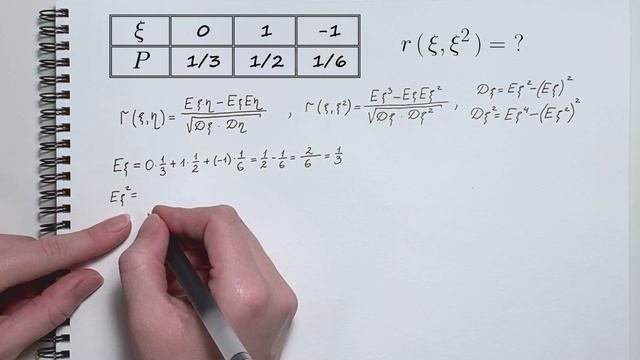 ξ 0 1 -1
P 1/3 1/2 1/6
r(ξ,ξ²) = ?
r(ξ,η) = (Eξη - EξEη)/√(Dξ · Dη) , r(ξ,ξ²) = (Eξ³ - EξEξ²)/√(Dξ · Dξ²) , Dξ = Eξ² - (Eξ)²
Dξ² = Eξ⁴ - (Eξ²)²
Eξ = 0·1/3 + 1·1/2 + (-1)·1/6 = 1/2 - 1/6 = 2/6 = 1/3
Eξ² =